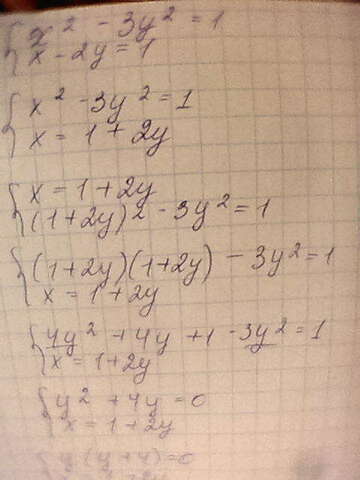 x² - 3y² = 1
x - 2y = 1
x² - 3y² = 1
x = 1 + 2y
x = 1 + 2y
(1+2y)² - 3y² = 1
(1+2y)(1+2y) - 3y² = 1
x = 1 + 2y
4y² + 4y + 1 - 3y² = 1
x = 1+2y
y² + 4y = 0
x = 1 + 2y
y (y+4) = 0